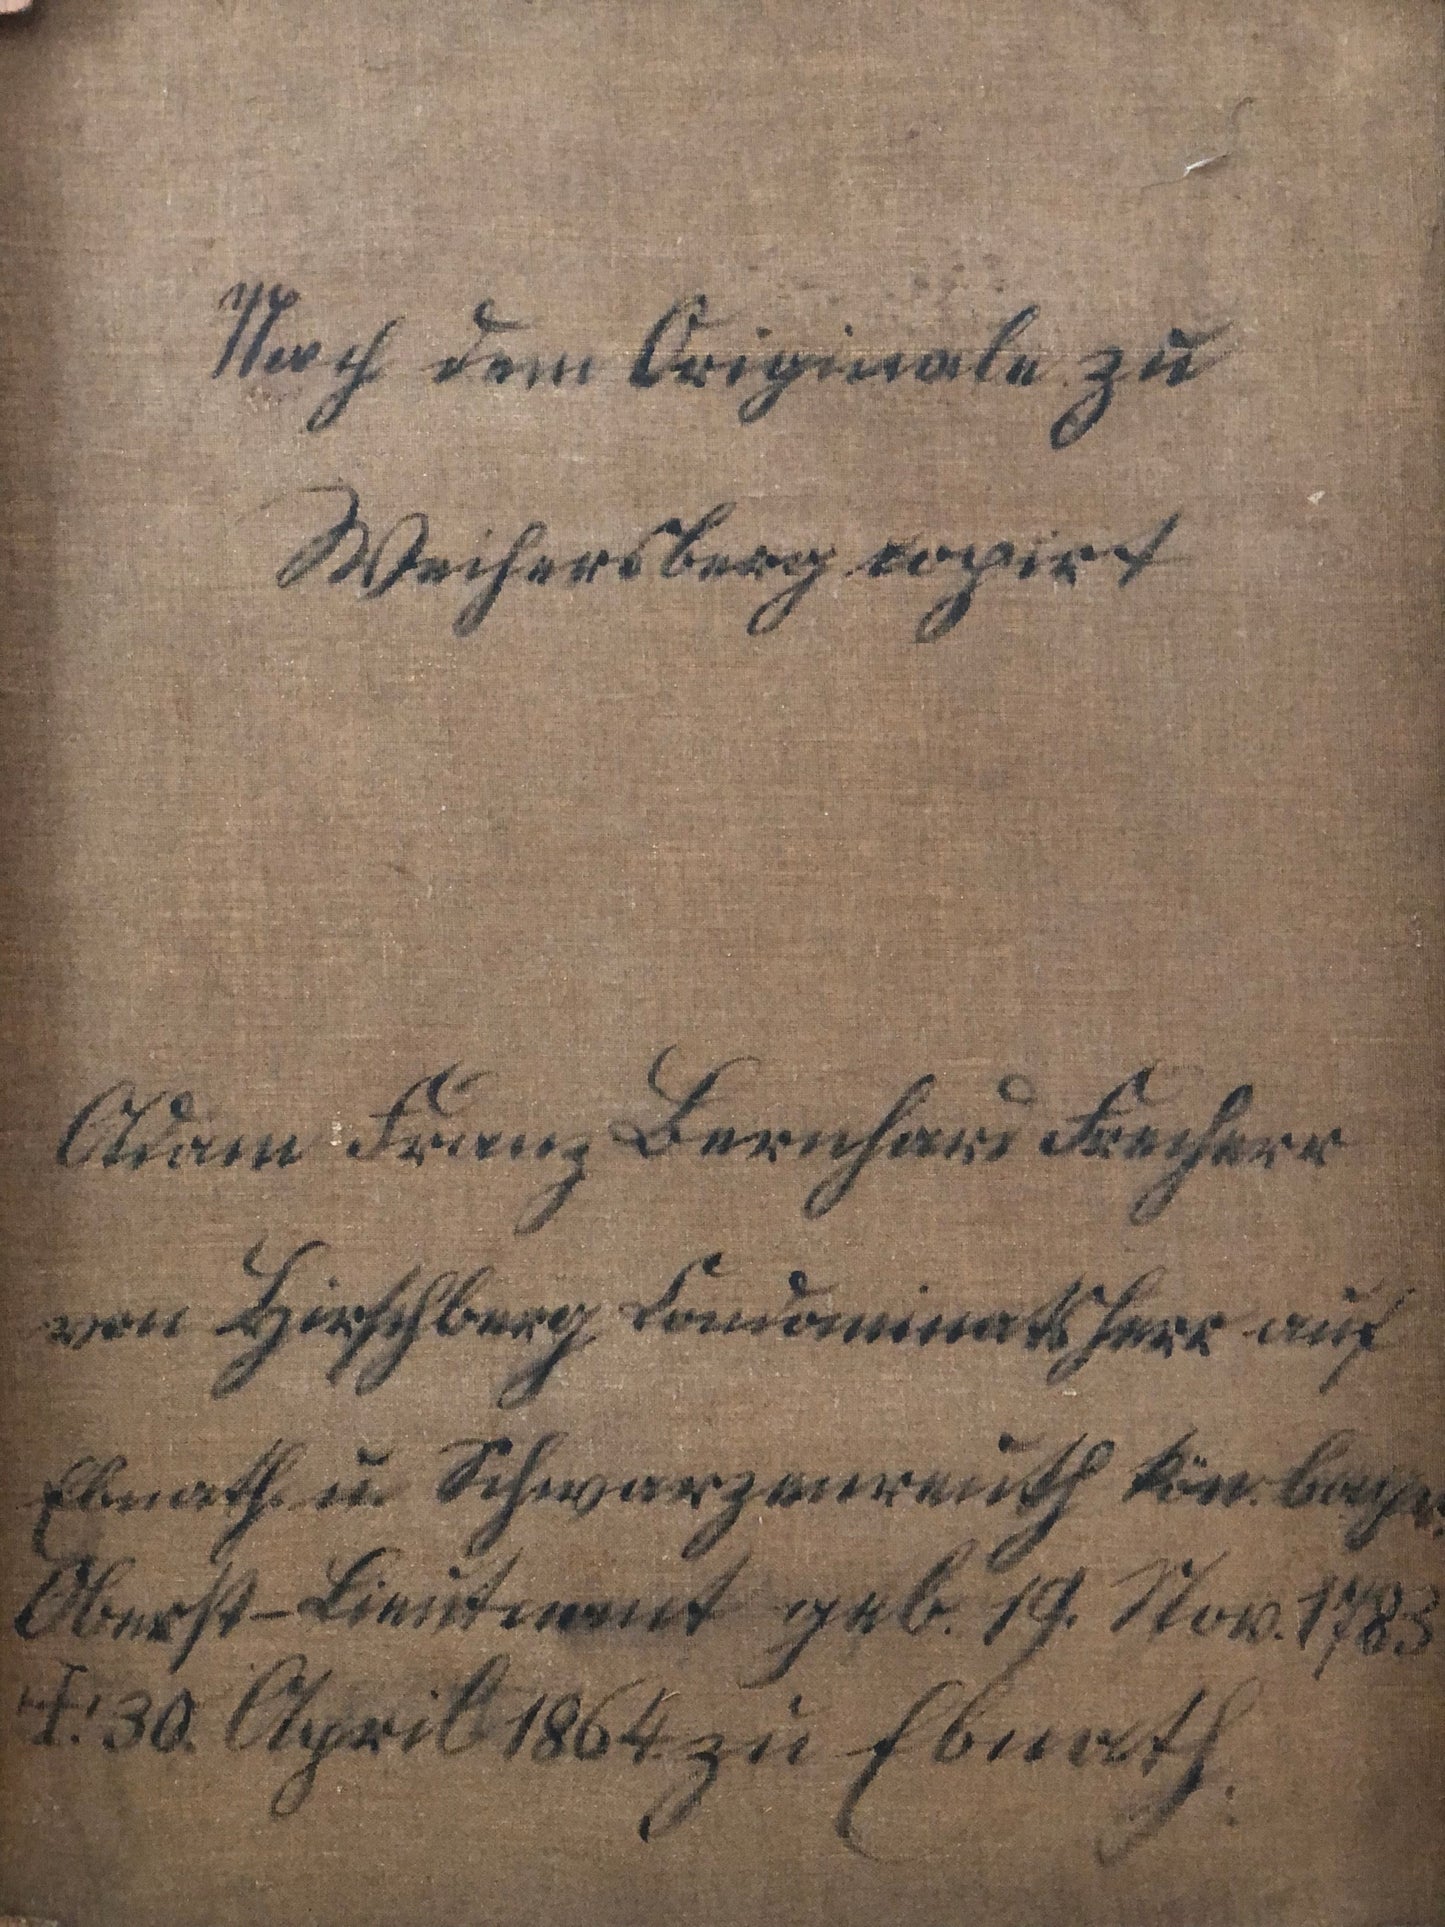 Nach dem Originale zu
Weihersberg kopirt
Adam Franz Bernhard Freiherr
von Hirschberg Condominatsherr auf
Ebnath u Schwarzenreuth kön. bayer.
Oberst-Lieutenant geb. 19. Nov. 1783
†. 30. April 1864 zu Ebnath.